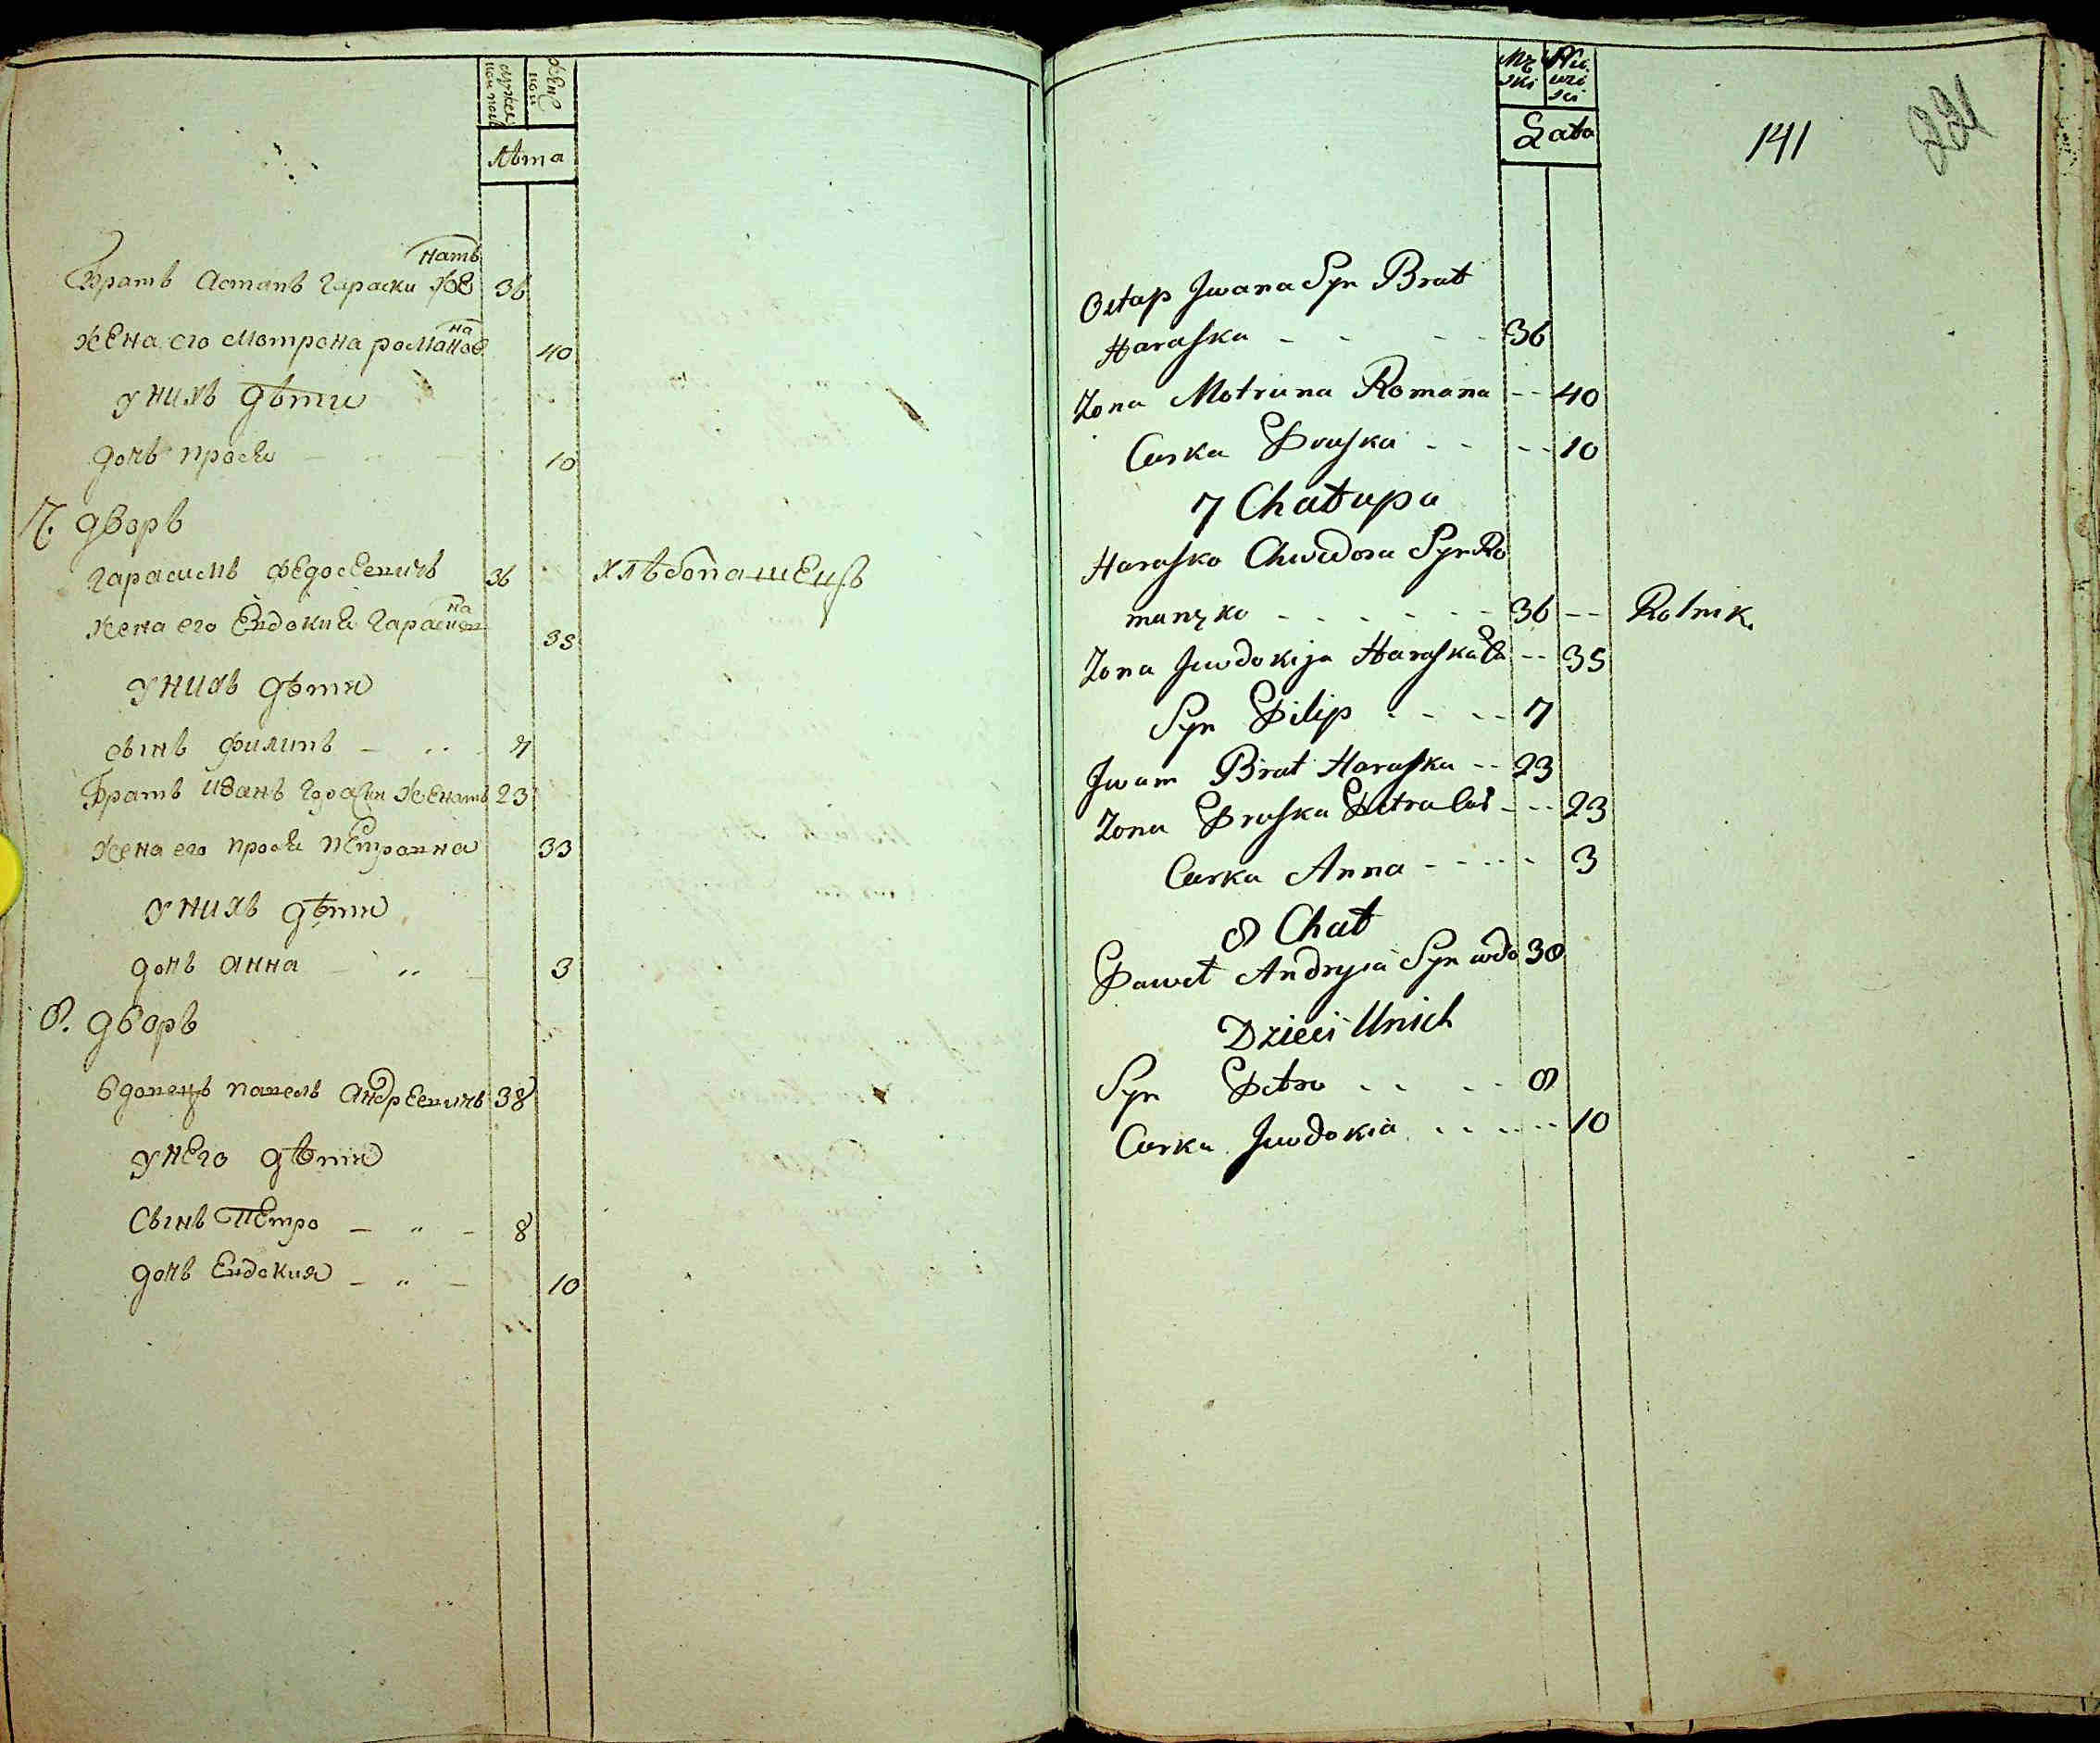 Мужеск
ии полъ
Женс
кии
лѣта
натъ
Братъ Астапъ Гараски же 36
на
Жена его Мотрона Романов 40
у нихъ дѣти
дочь Прося — 10
7. дворъ
Гарасимъ Федосеевичъ 36 хлѣбопашецъ
на
Жена его Евдокия Гарасим 35
у нихъ дѣти
сынъ Филипъ — 7
Братъ Иванъ женатъ 23
Жена его Прося Петровна 33
у нихъ дѣти
дочь Анна — „ — 3
8. дворъ
вдовецъ Павелъ Андреевичъ 38
у него дѣти
Сынъ Петро — „ — 8
дочь Евдокия — „ — 10
Mę
ski
Żeń
ski
Lata
141
221
Ostap Jwana Syn Brat
Haraska - - - - 36
Zona Motruna Romana -- 40
Curka Praska - - -- 10
7 Chałupa
Harasko Chwedora Syn Ro
manzko - - - - - - 36 -- Rolnik.
Zona Juwdokija Haraska -- 35
Syn Pilip - - - - 7
Jwan Brat Haraska -- 23
Zona Praska Petra Cur --- 23
Curka Anna - - - - - 3
8 Chał
Paweł Andryia Syn wdo 38
Dzieci Unich
Syn Petro - - - - 8
Curka Juwdokia - - - - - 10